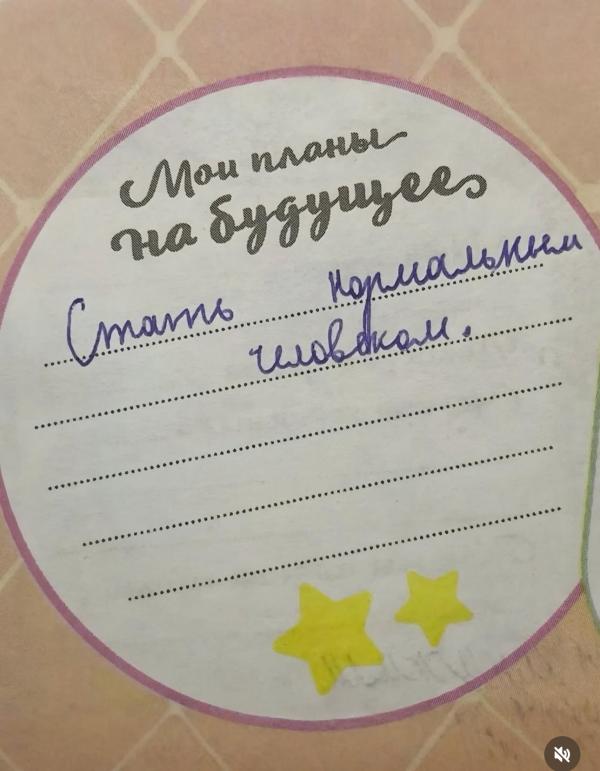 Мои планы
на будущее
Стать нормальным
человеком.